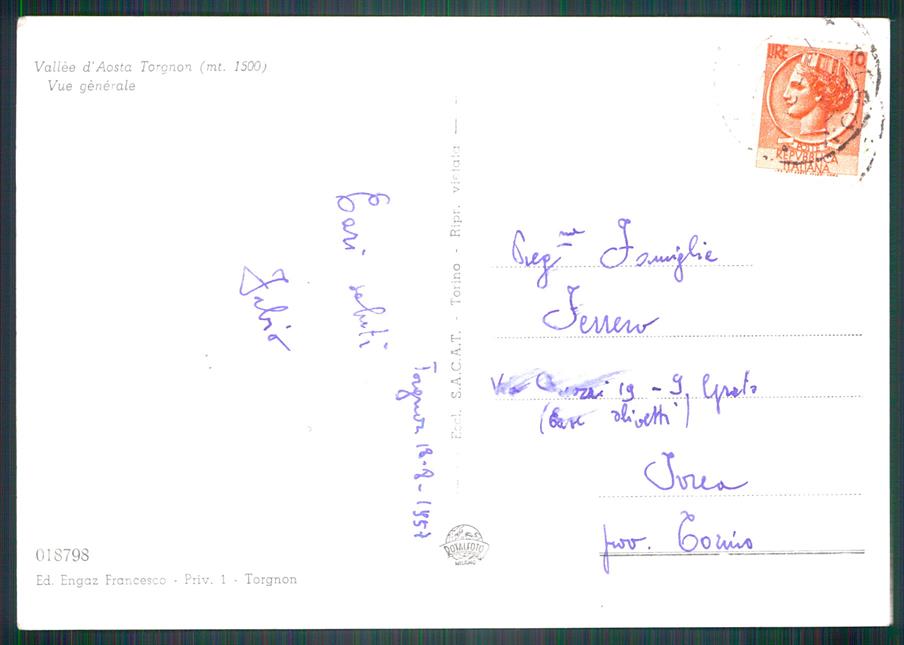 Vallèe d'Aosta Torgnon (mt. 1500)
Vue gènèrale
Cari saluti
Fabio
Torgnon 18-8-1957
Eccl. S.A.C.A.T. - Torino - Ripr. vietata
LIRE 10
POSTE
REPVBBLICA
ITALIANA
Preg.me Famiglie
Ferrero
Via 19 - S. Grato
(Case Olivetti)
Ivrea
prov. Torino
ROTALFOTO
MILANO
018798
Ed. Engaz Francesco - Priv. 1 - Torgnon